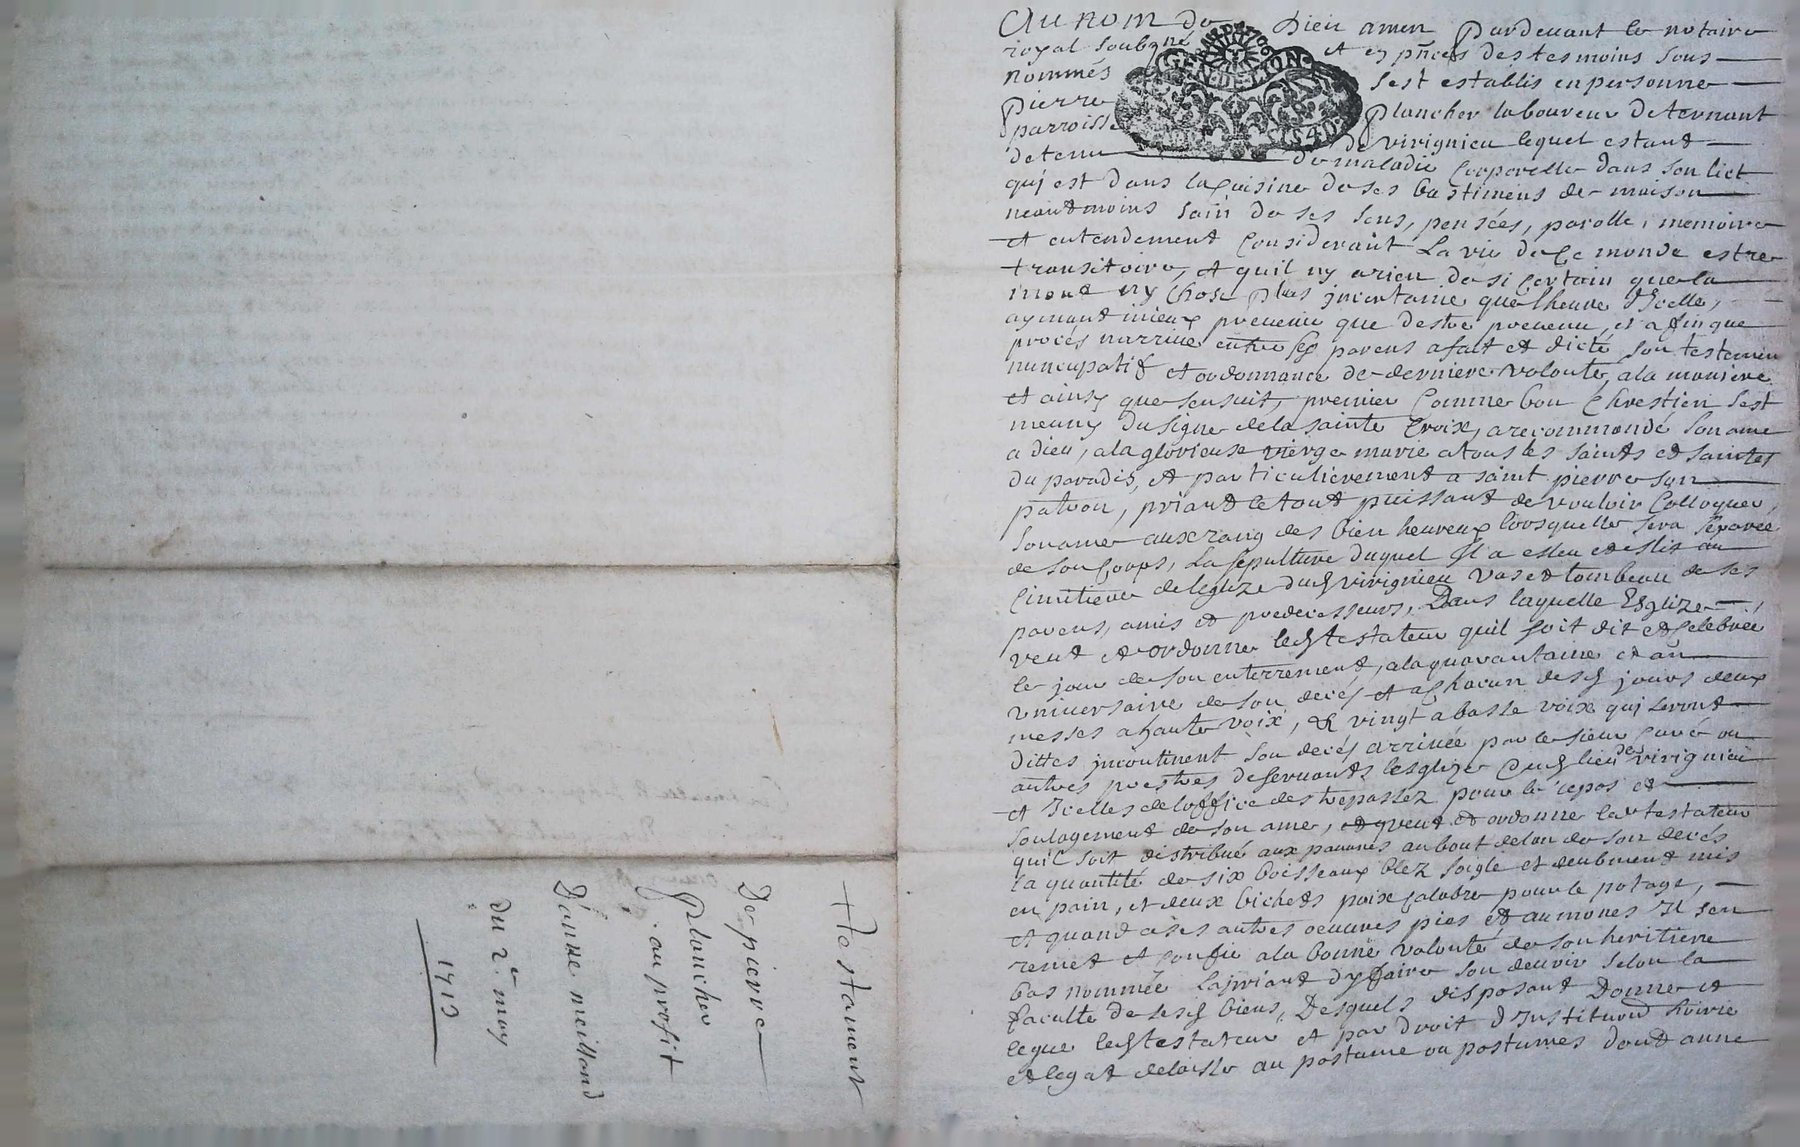 Au nom de Dieu amen Pardevant le notaire
royal soubzné et en pñces des tesmoins sous
nommés sest establis en personne
pierre Plancher laboureur de ternant
parroisse de virignieu lequel estant
detenu de maladie Corporelle dans son lict
qui est dans la Cuisine de ses bastimens de maison
neantmoins sain de ses sens, pensées, parolle, memoire
et entendement Considerant La vie de Ce monde estre
transitoire, et quil ny a rien de si Certain que la
mort ny Chose plus jncertaine que lheure dJcelle,
aymant mieux prevenir que destre prevenu, et afin que
procés narrive entre ses parens a fait et dicté son testemen
nuncupatif et ordonnance de derniere volonté, a la maniere
et ainsy que sensuit, premier Comme bon Chrestien sest
meuny du signe de la sainte Croix, a recommandé son ame
a dieu, a la glorieuse vierge marie a tous les saints et saintes
du paradis, et particulierement a saint pierre son
patron, priant le tout puissant de vouloir Colloquer
son ame aux rang des bien heureux lorsquelle sera separée
de son Corps, La sepulture duquel Jl a esleu et eslit au
Cimitiere de leglize dud virignieu vas et tombeau de ses
parens, amis et predecesseurs, Dans laquelle Esglize
veut et ordonne led testateur quil soit dit et Celebrée
le jour de son enterrement, a la quarantaine et au
universaire de son decés et a Chacun desd jours deux
messes a haute voix, et vingt a basse voix qui seront
dittes jncontinent son decés arrivée par le sieur Curé ou
autres prestres deservants lesglize dud lieu de virignieu
et Jcelles de loffice des trepassez pour le repos et
soulagement de son ame, et veut et ordonne led testateur
quil soit distribué aux pauvres au bout de lan de son decés
la quantité de six boisseaux blez soigle et deubment mis
en pain, et deux bichets poix pour le potage,
et quand a ses autres oeuvres pies et aumones Jl sen
remet et Confie a la bonne volonté de son heritiere
bas nommée Lapriant dy faire son devoir selon la
faculté de sesd biens, Desquels disposant Donne et
legue led testateur et par droit dJnstitution hoirie
et legat delaisse au postume ou postumes dont anne
testament
De pierre
Plancher
au profit
D'anne meilland
du 2e may
1713